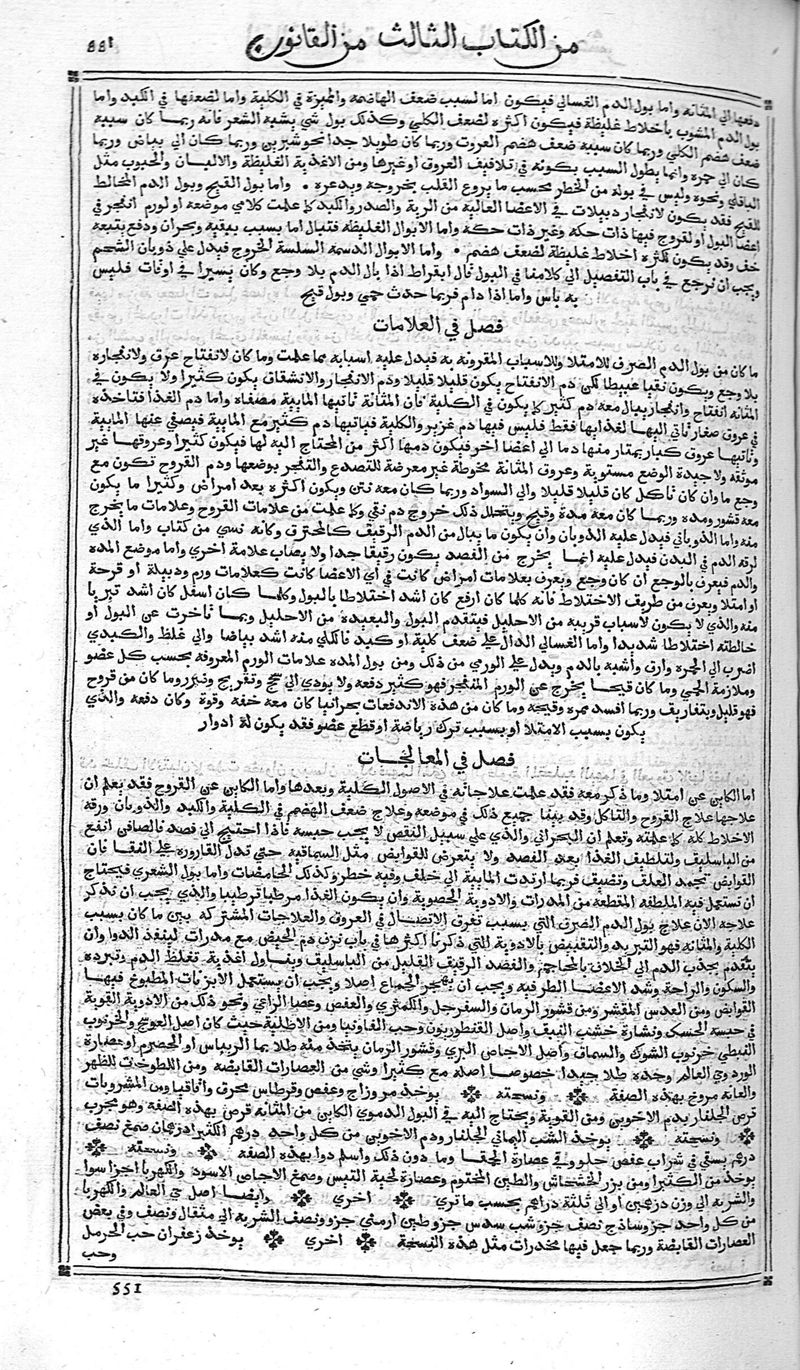 من الكتاب الثالث من القانون
٥٥١
دفعها الي المثانه واما بول الدم الغسالي فيكون اما لسبب ضعف الهاضمه والمميزة في الكلية واما لضعفها في الكبد واما
بول الدم المشوب باخلاط غليظة فيكون اكثره لضعف الكلي وكذلك بول شي يشبه الشعر فانه ربما كان سببه
ضعف هضم الكلي وربما كان سببه ضعف هضم العروت وربما كان طويلا جدا نحو شبرين وربما كان الي بياض وربما
كان الي حمره وانما يطول السبب بكونه في تلافيف العروق او غيرها ومن الاغذية الغليظة والالبان والحبوب مثل
الباقلي ونحوه وليس في بوله من الخطر بحسب ما يروع القلب بخروجه ويذعره • واما بول القيح وبول الدم المخالط
للقيح فقد يكون لانفجار دبيلات في الاعضا العالية من الرية والصدر والكبد كما علمت كلا في موضعه او لورم انفجر في
اعضا البول او لقروح فيها ذات حكه وغير ذات حكه واما الابوال الغليظه فتبال اما بسبب تنقية وبحران ودفع يتبعه
خف وقد يكون لكثره اخلاط غليظة لضعف هضم • واما الابوال الدسمه السلسة الخروج فيدل علي ذوبان الشحم
ويجب ان نرجع في باب التفصيل الي كلامنا في البول قال ابقراط اذا بال الدم بلا وجع وكان يسيرا في اوقات فليس
به باس واما اذا دام فربما حدث حمي وبول قيح
فصل في العلامات
ما كان من بول الدم الصرف للامتلا وللاسباب المقرونه به فيدل عليه اسبابه مما علمت وما كان لانفتاح عرق ولانفجاره
بلا وجع ويكون نقيا عبيطا لكن دم الانفتاح يكون قليلا قليلا ودم الانفجار والانشقاق يكون كثيرا ولا يكون في
المثانه انفتاح وانفجار يبال معه دم كثير كما يكون في الكلية فان المثانة تاتيها المايية مصفاه واما دم الغذا فتاخذه
في عروق صغار تاتي اليها لغذايها فقط فليس فيها دم غزير والكلية فياتيها دم كثير مع المايية فيصفي عنها المايية
وتاتيها عروق كبار يمتار منها دما الي اعضا اخر فيكون دمها اكثر من المحتاج اليه لها فيكون كثيرا وعروقها غير
موثقه ولا جيدة الوضع مستوية وعروق المثانة محوطة غير معرضة للتصدع والتفجر بوضعها ودم القروح تكون مع
وجع ما وان كان تاكل كان قليلا قليلا والي السواد وربما كان معه نتن ويكون اكثره بعد امراض وكثيرا ما يكون
معه قشور ومده وربما كان معه مدة وقيح ويتخلل ذلك خروج دم نقي وكما علمت من علامات القروح وعلامات ما يخرج
منه واما الذوباني فيدل عليه الذوبان وان يكون ما يبال من الدم الرقيق كالمحترق وكانه نسي من كتاب واما الذي
لرقه الدم في البدن فيدل عليه انما يخرج من الفصد يكون رقيقا جدا ولا يصاب علامة اخري واما موضع المده
والدم فيعرف بالوجع ان كان وجع ويعرف بعلامات امراض كانت في أي الاعضا كانت كعلامات ورم ودبيلة او قرحة
او امتلا ويعرف من طريق الاختلاط فانه كلما كان ارفع كان اشد اختلاطا بالبول وكلما كان اسفل كان اشد تبريا
منه والذي لا يكون لاسباب قريبه من الاحليل فيتقدم البول والبعيده من الاحليل ربما تاخرت عن البول او
خالطته اختلاطا شديدا واما الغسالي الدال علي ضعف كلية او كبد فالكلي منه اشد بياضا والي غلظ والكبدي
اضرب الي الحمره وارق واشبه بالدم ويدل علي الورمي من ذلك ومن بول المده علامات الورم المعروفه بحسب كل عضو
وملازمة الحمي وما كان قيحا يخرج عن الورم المنفجر فهو كثير دفعه ولا يودي الي سحج وتقريح وضرر وما كان من قروح
فهو قليل وبتفاريق وربما افسد ممره وقيحه وما كان من هذه الاندفعات بحرانيا كان معه خفه وقوة وكان دفعه والذي
يكون بسبب الامتلا او بسبب ترك رياضة او قطع عضو فقد يكون له ادوار
فصل في المعالجات
اما الكاين عن امتلا وما ذكر معه فقد علمت علاجاته في الاصول الكلية وبعدها واما الكاين عن القروح فقد يعلم ان
علاجها علاج القروح والتاكل وقد بينا جميع ذلك في موضعه وعلاج ضعف الهضم في الكلية والكبد والذوبان ورقه
الاخلاط كله كما علمته وتعلم ان البحراني والذي علي سبيل النقص لا يجب حبسه فاذا احتيج الي فصد فالصافن انفع
من الباسليق ولتلطيف الغذا بعد الفصد ولا يتعرض للقوابض مثل السماقيه حتي تدل القاروره علي النقا فان
القوابض تجمد العلق وتضيق فربما ارتدت المايية الي خلف وفيه خطر وكذلك الحامضات واما بول الشعري فيحتاج
ان تستعمل فيه الملطفه المقطعه من المدرات والادوية الحصوية وان يكون الغذا مرطبا ترطيبا والذي يجب ان نذكر
علاجه الان علاج بول الدم الصرف التي بسبب تفرق الاتصال في العروق والعلاجات المشتركه بين ما كان بسبب
الكلية والمثانه فهو التبريد والتقبيض بالادوية التي ذكرنا اكثرها في باب نزف دم الحيض مع مدرات لينفذ الدوا وان
يتقدم بجذب الدم الي الخلاف بالمحاجم والفصد الرقيق القليل من الباسليق ويتناول اغذية تغلظ الدم وتبرده
والسكون والراحة وشد الاعضا الطرفيه ويجب ان يهجر الجماع اصلا ويجب ان يستعمل الابزنات المطبوخ فيها
القوابض ومن العدس المقشر ومن قشور الرمان والسفرجل والكمثري والعفص وعصا الراعي ونحو ذلك من الادوية القوية
في حبسه الحسك ونشارة خشب النبق واصل القنطوريون وحب الفاونيا ومن الاطلية حيث كان اصل العوسج والخرنوب
النبطي خرنوب الشوك والسماق واصل الاجاص البري وقشور الرمان يتخذ منه طلا بما الريباس او الحصرم او عصارة
الورد وحي العالم وحده طلا جيدا خصوصا اصله مع كثيرا وشي من العصارات القابضه ومن اللطوخات للظهر
والعانه مروخ بهذه الصفة ونسخته يوخذ مر وزاج وعفص وقرطاس محرق واقاقيا ومن المشروبات
قرص الجلنار بدم الاخوين ومن القوية ويحتاج اليه في البول الدموي الكاين من المثانه قرص بهذه الصفه وهو مجرب
ونسخته يوخذ الشب اليماني الجلنار ودم الاخوين من كل واحد درهم الكثيرا درهمان صمغ نصف
درهم يسقي في شراب عفص حلو وفي عصارة الحمقا وما دون ذلك واسلم دوا بهذه الصفه ونسخته
يوخذ من الكثيرا ومن بزر الخشخاش والطين المختوم وعصارة لحية التيس وصمغ الاجاص الاسود والكهربا اجزا سوا
والشربه الي وزن درهمين او الي ثلثة دراهم بحسب ما تري اخري وايضا اصل حي العالم والكهربا
من كل واحد جزو ساذج نصف جزو شب سدس جزو طين ارمني جزو ونصف الشربه الي مثقال ونصف وفي بعض
العصارات القابضة وربما جعل فيها مخدرات مثل هذه النسخة اخري يوخذ زعفران حب الحرمل
وحب
551